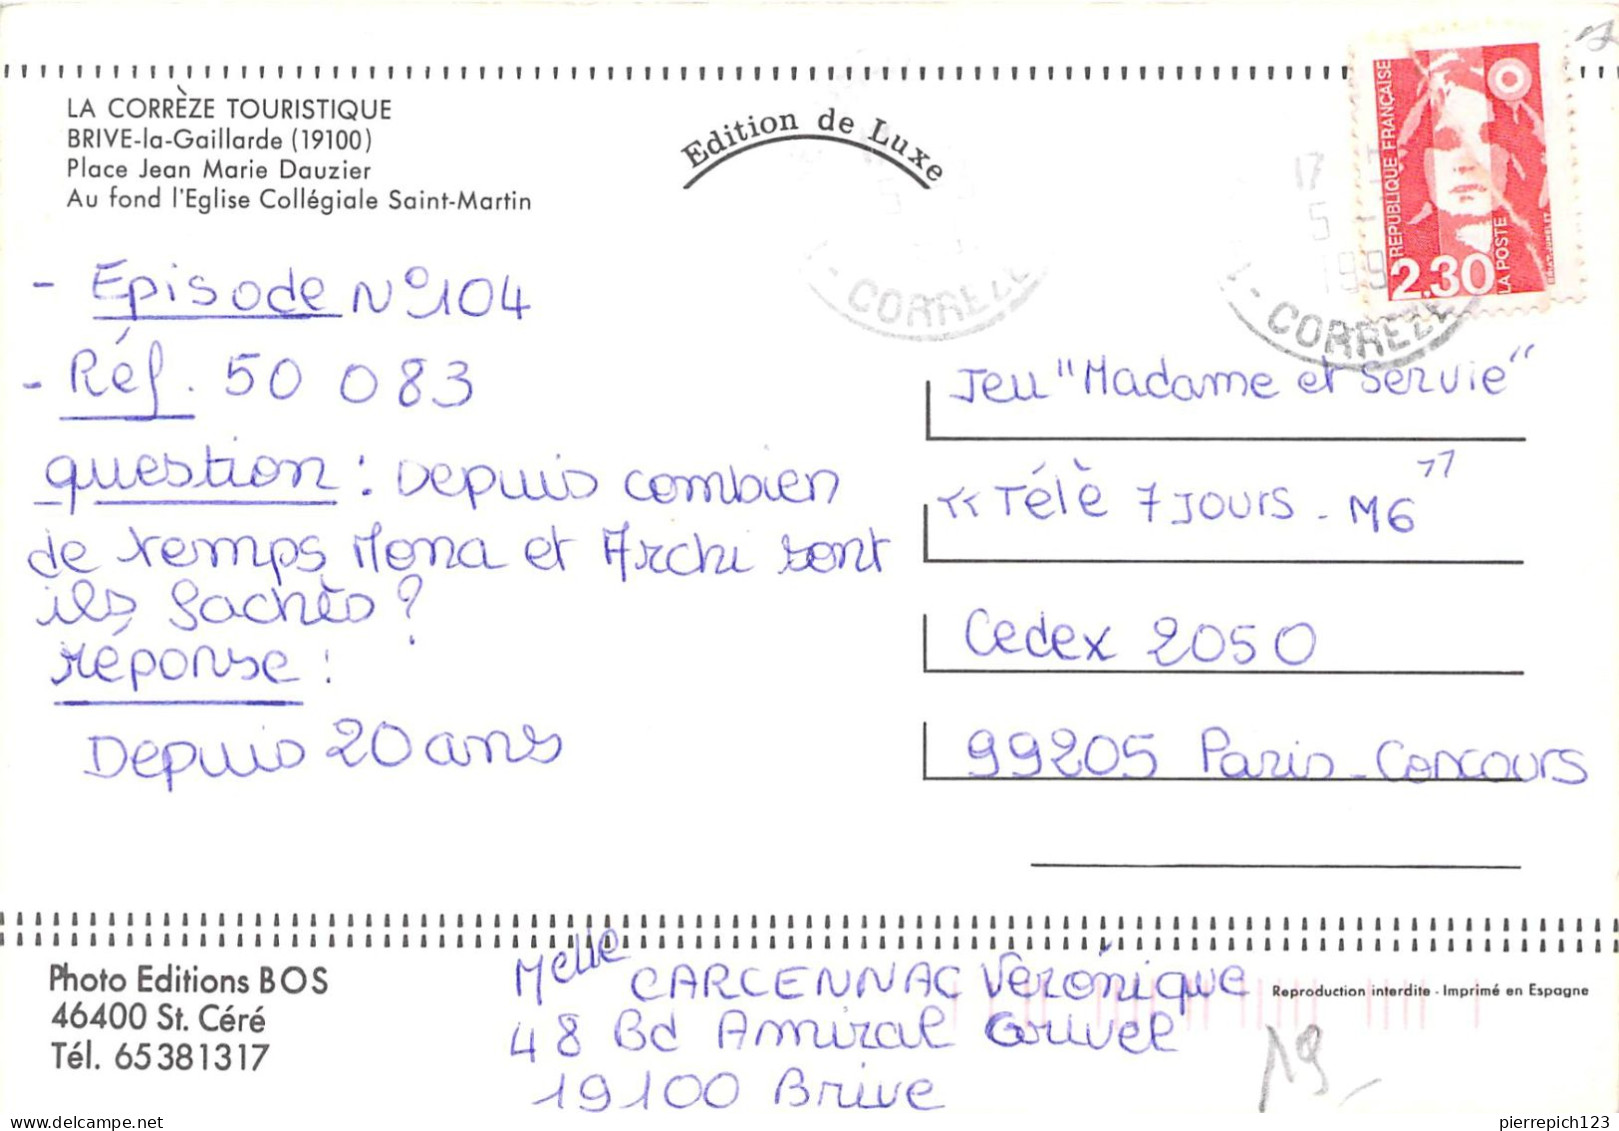 LA CORRÈZE TOURISTIQUE
BRIVE-la-Gaillarde (19100)
Place Jean Marie Dauzier
Au fond l'Eglise Collégiale Saint-Martin
Edition de Luxe
REPUBLIQUE FRANÇAISE
2.30
LA POSTE
17
5
199
CORREZE
CORREZE
- Episode N° 104
- Réf. 50 083
question : Depuis combien
de temps Mona et Archi sont
ils fachès ?
réponse :
Depuis 20 ans
Jeu "Madame et Servie"
"Télè 7 JOURS - M6"
Cedex 2050
99205 Paris-Concours
Photo Editions BOS
46400 St. Céré
Tél. 65381317
Melle CARCENNAC Veronique
48 Bd Amiral Grivel
19100 Brive
Reproduction interdite - Imprimé en Espagne
19
pierrepich123